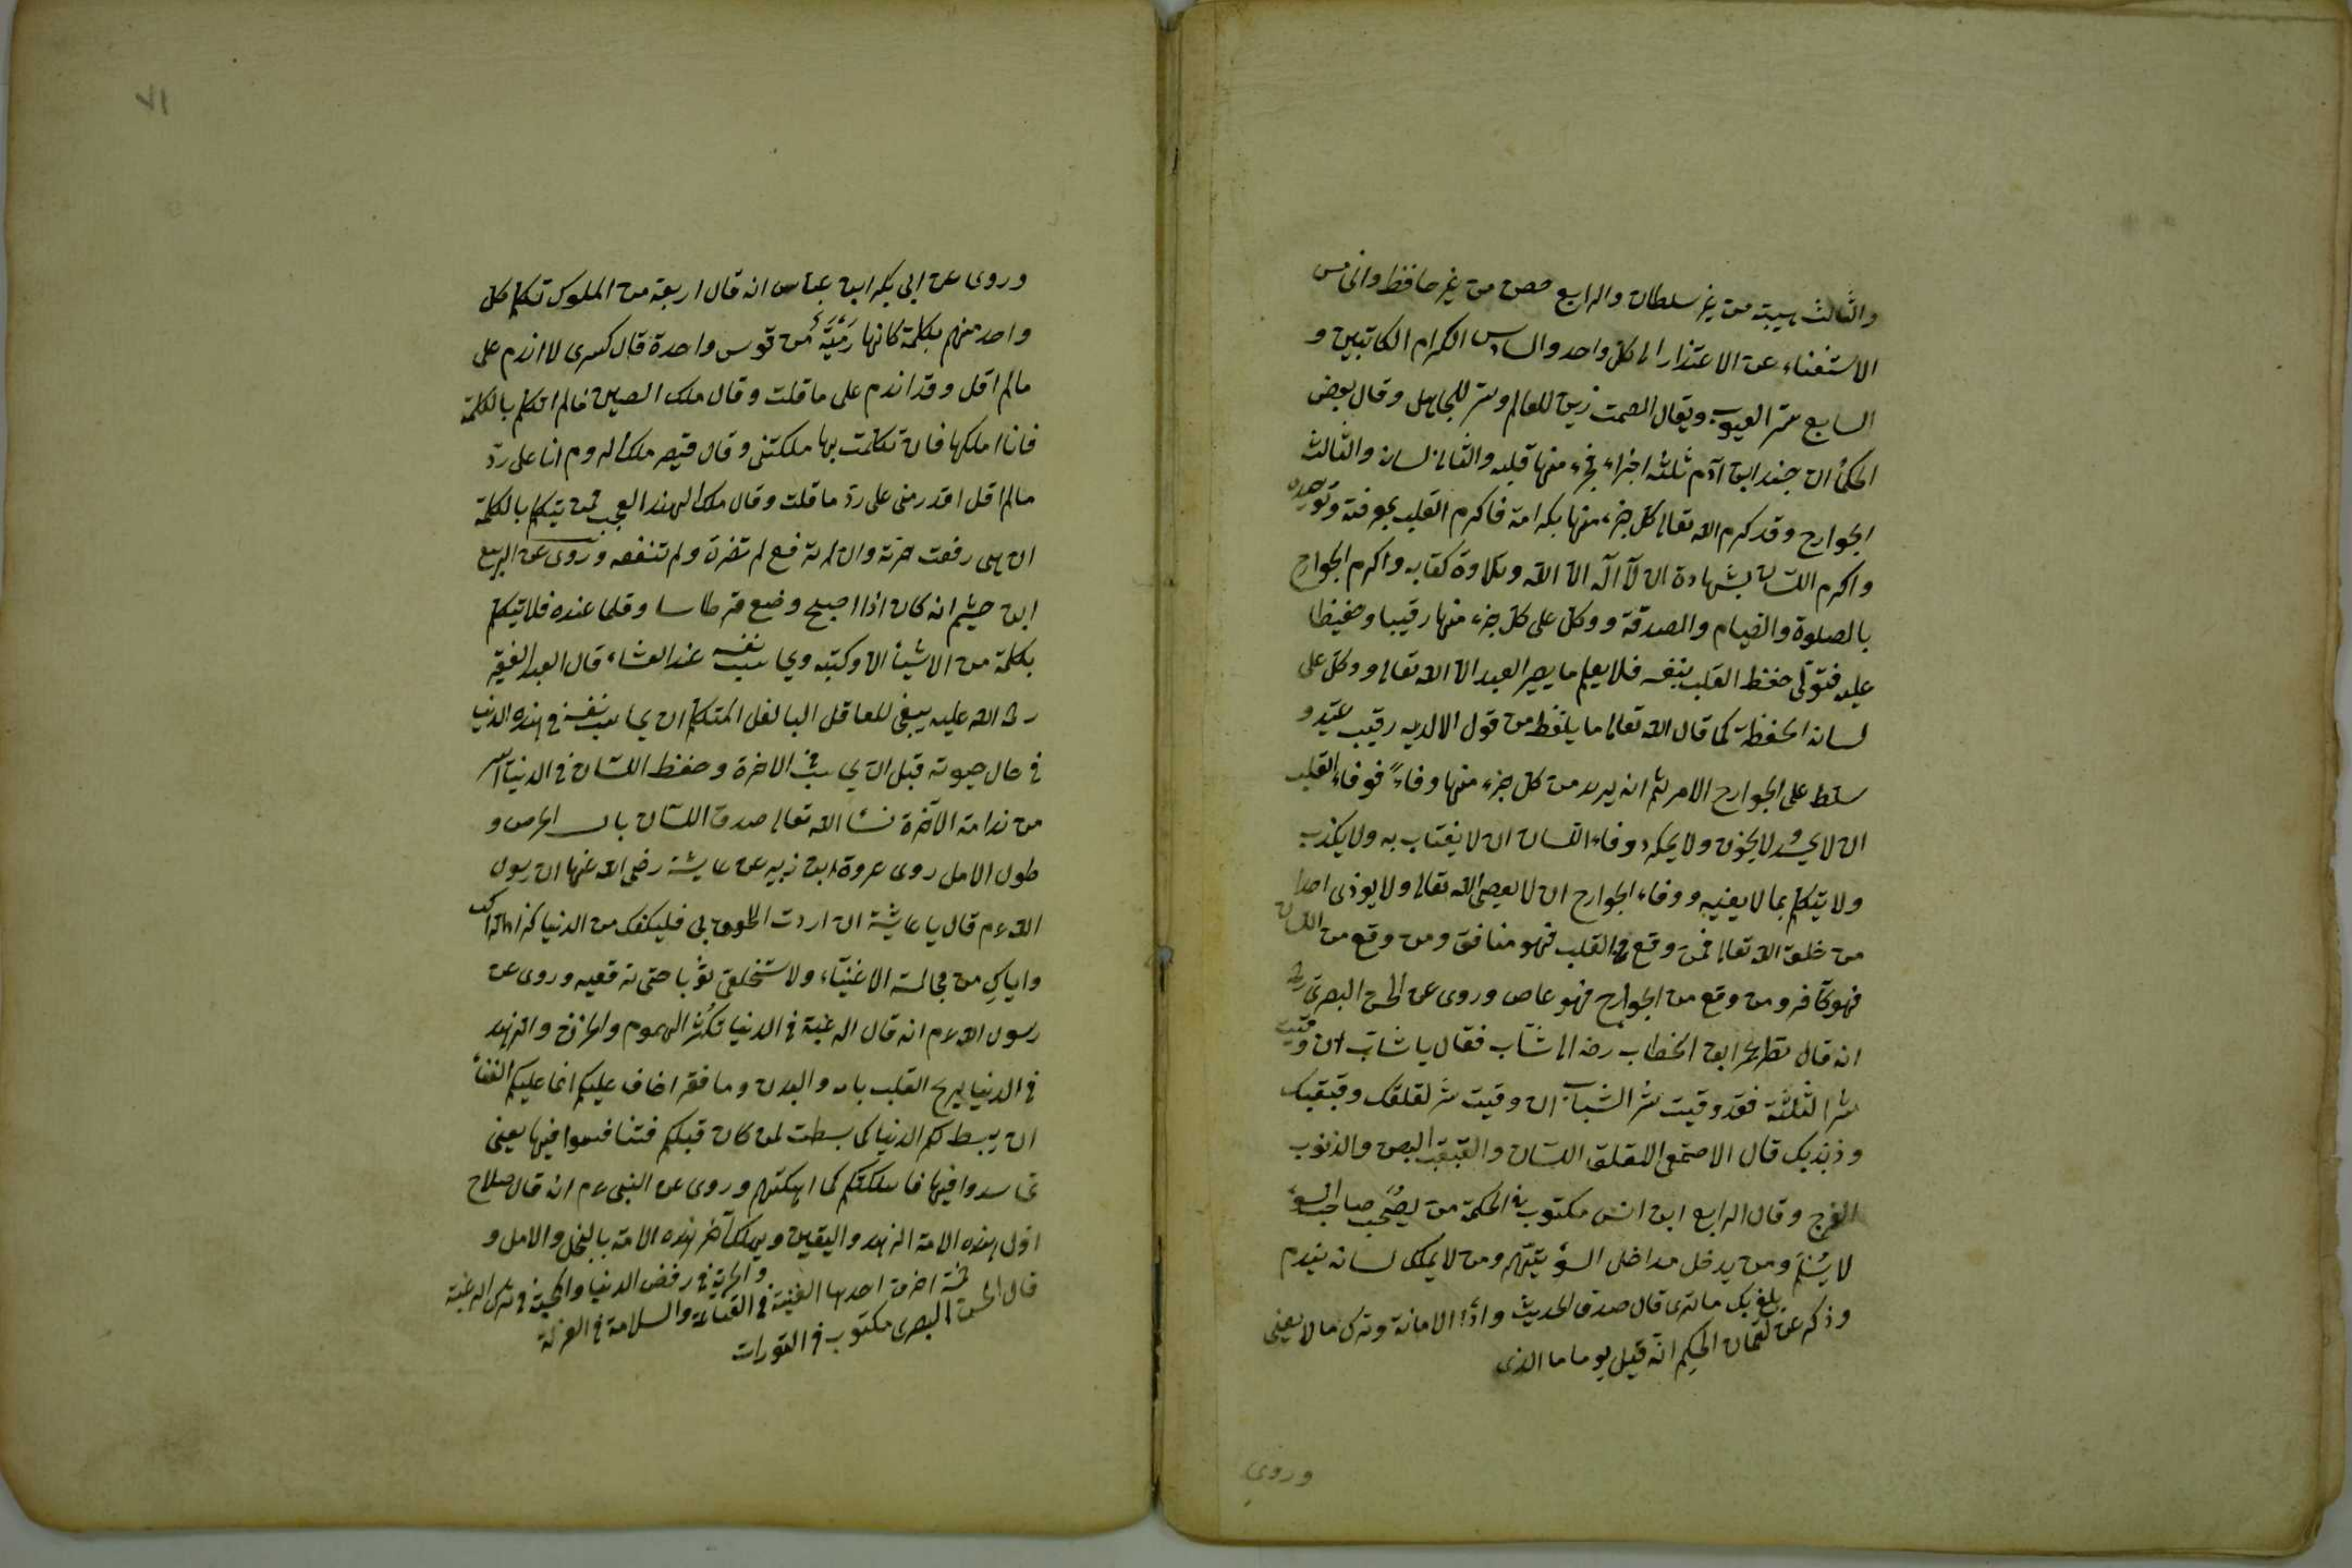 والثالث هيبة من غير سلطان والرابع حصن من غير حافظ والخامس
الاستغناء عن الاعتذار الى كل واحد والسادس الكرام الكاتبين و
السابع ستر العيوب ويقال الصمت زين للعالم وستر للجاهل وقال بعض
الحكمأ ان جسد ابن آدم ثلثة اجزاء فجزء منها قلبه والثانى لسان والثالث
الجوارح وقد كرم الله تعالى كل جزء منها بكرامة فاكرم القلب بمعرفته وتوحيده
واكرم اللسان بشهادة ان لا اله الا الله وتلاوة كتابه واكرم الجوارح
بالصلوة والصيام والصدقة ووكل على كل جزء منها رقيبا وحفيظا
عليه فتولى حفظ القلب بنفسه فلا يعلم ما يصير العبد الا الله تعالى ووكل على
لسانه الحفظة كما قال الله تعالى ما يلفظ من قول الا لديه رقيب عتيد و
سلط على الجوارح الامر ثم انه يريد من كل جزء منها وفاءً فوفاء القلب
ان لا يحسد ولا يخون ولا يمكر ووفاء اللسان ان لا يغتاب به ولا يكذب
ولا يتكلم بما لا يعنيه ووفاء الجوارح ان لا يعصى الله تعالى ولا يوذى احدا
من خلق الله تعالى فمن وقع من القلب فهو منافق ومن وقع من اللسان
فهو كافر ومن وقع من الجوارح فهو عاص وروى عن الحسن البصرى رح
انه قال نظر عمر ابن الخطاب رضه الى شاب فقال يا شاب ان وقيت
شر الثلثة فقد وقيت شر الشباب ان وقيت شر لقلقك وقبقبك
وذبذبك قال الاصمعى اللقلق اللسان والقبقب البطن والذبذب
الفرج وقال الرابع ابن انس مكتوب فى الحكمة من يصحب صاحب السوء
لا يسلم ومن يدخل مداخل السوء يتهم ومن لا يملك لسانه يندم
وذكر عن لقمان الحكيم انه قيل يوما ما الذى
بلغ بك ما ترى قال صدق الحديث واداء الامانة وترك ما لا يعنى
وروى
٧١
وروى عن ابى بكر ابن عباس انه قال اربعة من الملوك تكلم كل
واحد منهم بكلمة كانها رَمْيَةٌ من قوس واحدة قال كسرى لا اندم على
مالم اقل وقد اندم على ما قلت وقال ملك الصين مالم اتكلم بالكلمة
فانا املكها فان تكلمت بها ملكتنى وقال قيصر ملك الروم انا على ردّ
مالم اقل اقدر منى على ردّ ما قلت وقال ملك الهند العجب لمن يتكلم بالكلمة
ان هى رفعت ضرته وان لم ترفع لم تضره ولم تنفعه وروى عن الربيع
ابن خيثم انه كان اذا اصبح وضع قرطاسا وقلما عنده فلا يتكلم
بكلمة من الاشيأ الا وكتبه ويحاسب نفسه عند العشاء قال العبد الفقيه
رحمة الله عليه ينبغى للعاقل المتكلم ان يحاسب نفسه فى هذه الدنيا
فى حال حيوته قبل ان يحاسب فى الاخرة وحفظ اللسان فى الدنيا ايسر
من ندامة الآخرة نسأ الله تعالى صدق اللسان باب الحرص و
طول الامل روى عروة ابن زبير عن عايشة رضى الله عنها ان رسول
الله عم قال يا عايشة ان اردت اللحوق بى فليكفك من الدنيا كزاد الراكب
واياكِ من مجالسة الاغنياء ولا تستخلقى ثوبا حتى ترقعيه وروى عن
رسول الله عم انه قال الرغبة فى الدنيا تكثر الهموم والحزن والزهد
فى الدنيا يريح القلب والبدن وما فقر اخاف عليكم انما عليكم الغنأ
ان يبسط لكم الدنيا كما بسطت لمن كان قبلكم فتنافسوا فيها يعنى
تحاسدوا فيها فاهلككم كما اهلكتهم وروى عن النبى عم انه قال صلاح
اول هذه الامة الزهد واليقين ويهلك آخر هذه الامة بالبخل والامل و
قال الحسن البصرى مكتوب فى التورات
خمسة احرف احدها الغنية فى القناعة والسلامة فى العزلة
والحرية فى رفض الدنيا والمحبة فى ترك الرغبة